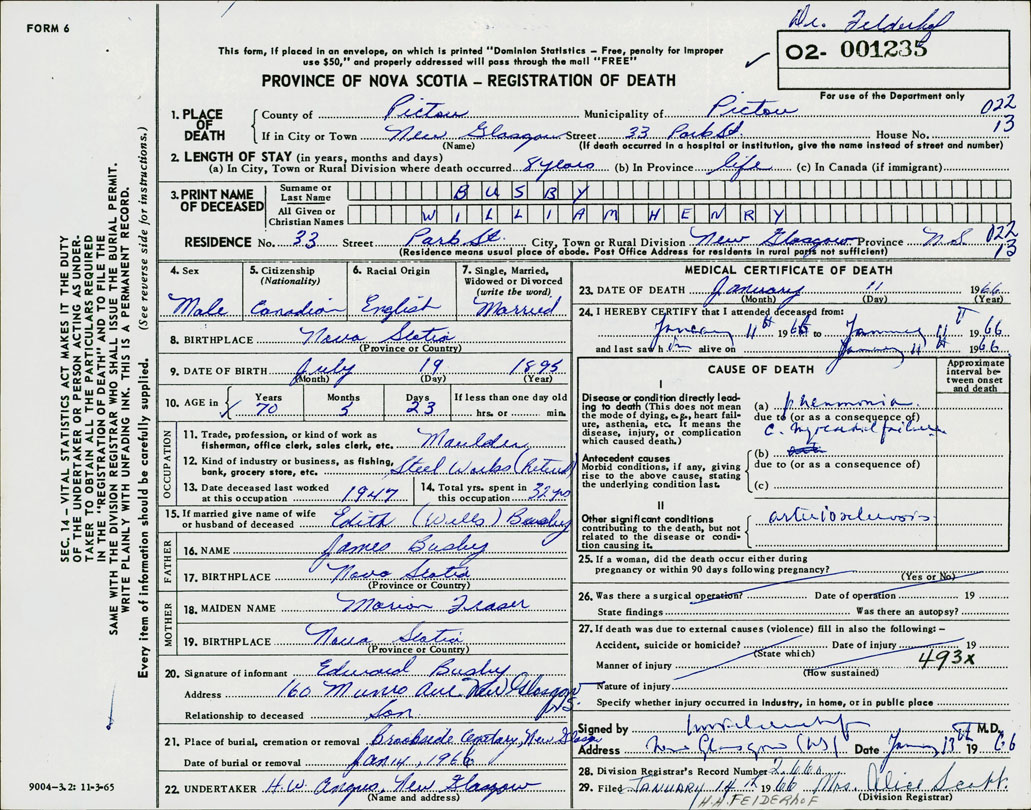 FORM 6
Dr. Felderhof
This form, if placed in an envelope, on which is printed "Dominion Statistics – Free, penalty for improper
use $50," and properly addressed will pass through the mail "FREE"
02- 001235
PROVINCE OF NOVA SCOTIA – REGISTRATION OF DEATH
For use of the Department only
1. PLACE OF DEATH
County of Pictou Municipality of Pictou 022
If in City or Town New Glasgow Street 33 Park St. House No. 13
(Name) (If death occurred in a hospital or institution, give the name instead of street and number)
2. LENGTH OF STAY (in years, months and days)
(a) In City, Town or Rural Division where death occurred 8 years (b) In Province life (c) In Canada (if immigrant)
3. PRINT NAME OF DECEASED
Surname or Last Name BUSBY
All Given or Christian Names WILLIAM HENRY
RESIDENCE No. 33 Street Park St. City, Town or Rural Division New Glasgow Province N.S. 022
13
(Residence means usual place of abode. Post Office Address for residents in rural parts not sufficient)
4. Sex
Male
5. Citizenship
(Nationality)
Canadian
6. Racial Origin
English
7. Single, Married, Widowed or Divorced
(write the word)
Married
8. BIRTHPLACE Nova Scotia
(Province or Country)
9. DATE OF BIRTH July 19 1895
(Month) (Day) (Year)
10. AGE in
Years 70
Months 5
Days 23
If less than one day old
hrs. or min.
OCCUPATION
11. Trade, profession, or kind of work as
fisherman, office clerk, sales clerk, etc. Moulder
12. Kind of industry or business, as fishing,
bank, grocery store, etc. Steel Works (Retired)
13. Date deceased last worked
at this occupation 1947
14. Total yrs. spent in
this occupation 32 yrs
15. If married give name of wife
or husband of deceased Edith (Wells) Busby
FATHER
16. NAME James Busby
17. BIRTHPLACE Nova Scotia
(Province or Country)
MOTHER
18. MAIDEN NAME Marion Fraser
19. BIRTHPLACE Nova Scotia
(Province or Country)
20. Signature of informant Edward Busby
Address 160 Munro Ave New Glasgow N.S.
Relationship to deceased Son
21. Place of burial, cremation or removal Brookside Cemetary, New Glasgow
Date of burial or removal Jan 14, 1966
22. UNDERTAKER H.W. Angus, New Glasgow
(Name and address)
MEDICAL CERTIFICATE OF DEATH
23. DATE OF DEATH January 11 1966
(Month) (Day) (Year)
24. I HEREBY CERTIFY that I attended deceased from:
January 11th 1966 to January 11th 1966
and last saw him alive on January 11th 1966
CAUSE OF DEATH
Approximate interval between onset and death
I
Disease or condition directly leading
to death (This does not mean
the mode of dying, e.g., heart failure,
asthenia, etc. It means the
disease, injury, or complication
which caused death.)
(a) pneumonia
due to (or as a consequence of)
c. myocardial failure
Antecedent causes
Morbid conditions, if any, giving
rise to the above cause, stating
the underlying condition last.
(b)
due to (or as a consequence of)
(c)
II
Other significant conditions
contributing to the death, but not
related to the disease or condition
causing it.
arteriosclerosis
25. If a woman, did the death occur either during
pregnancy or within 90 days following pregnancy?
(Yes or No)
26. Was there a surgical operation? Date of operation 19
State findings Was there an autopsy?
27. If death was due to external causes (violence) fill in also the following:–
Accident, suicide or homicide? Date of injury 19
(State which)
493x
Manner of injury
(How sustained)
Nature of injury
Specify whether injury occurred in industry, in home, or in public place
Signed by M.D.
Address New Glasgow (NS) Date January 13th 1966
28. Division Registrar's Record Number
29. Filed JANUARY 14th 1966 Mrs. Alice Scott
(Division Registrar)
H.A. FELDERHOF
9004–3.2: 11-3-65
SEC. 14 – VITAL STATISTICS ACT MAKES IT THE DUTY
OF THE UNDERTAKER OR PERSON ACTING AS UNDERTAKER
TO OBTAIN ALL THE PARTICULARS REQUIRED
IN THE "REGISTRATION OF DEATH" AND TO FILE THE
SAME WITH THE DIVISION REGISTRAR WHO SHALL ISSUE THE BURIAL PERMIT.
WRITE PLAINLY WITH UNFADING INK. THIS IS A PERMANENT RECORD.
Every item of information should be carefully supplied. (See reverse side for instructions.)